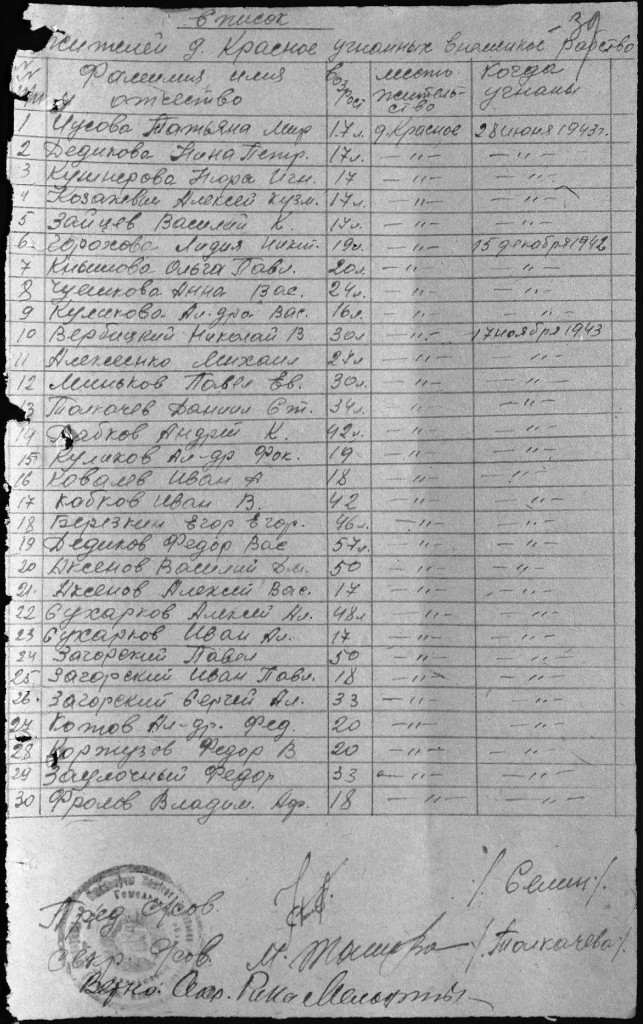 39
Список
жителей д. Красное угнанных в немецкое рабство
№№ Фамилия имя отчество возраст место жительство когда угнаны
1 Чусова Татьяна Мир 17л. д.Красное 28 июня 1943г.
2 Дедикова Нина Петр. 17л. —"— —"—
3 Кушнерова Нюра Игн. 17 —"— —"—
4 Козакевич Алексей Кузм. 17л. —"— —"—
5 Зайцев Василий К. 17л. —"— —"—
6 Горохова Лидия Никит. 19л. —"— 15 декабря 1942
7 Ольга Павл. 20л. —"— —"—
8 Чуешкова Анна Вас. 24л. —"— —"—
9 Куликова Ал-дра Вас. 16л. —"— —"—
10 Вербицкий Николай В 30л —"— 17 ноября 1943
11 Алексеенко Михаил —"— —"—
12 Миньков Павел Ев. 30л. —"— —"—
13 Толкачев Даниил Ст. 34л. —"— —"—
14 Бабков Андрей К. 42л. —"— —"—
15 Куликов Ал-др Фок. 19 —"— —"—
16 Ковалев Иван А 18 —"— —"—
17 Кабков Иван В. 42 —"— —"—
18 Березкин Егор Егор. 46л. —"— —"—
19 Дедиков Федор Вас 57л. —"— —"—
20 Аксенов Василий Дм. 50 —"— —"—
21 Аксенов Алексей Вас. 17 —"— —"—
22 Сухарков Алексей Ал. 48л —"— —"—
23 Сухарков Иван Ал. 17 —"— —"—
24 Загорский Павел 50 —"— —"—
25 Загорский Иван Павл. 18 —"— —"—
26 Загорский Сергей Ал. 33 —"— —"—
27 Котов Ал-др. Фед. 20 —"— —"—
28 Коржузов Федор В 20 —"— —"—
29 Заулочный Федор 33 —"— —"—
30 Фролов Владим. Аф. 18 —"— —"—
Пред с/сов. /Селин/.
Секр. с/сов. /Толкачева/
Верно: Секр.